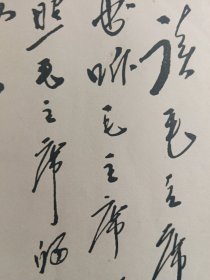 读毛主席
书听毛主席
照毛主席的